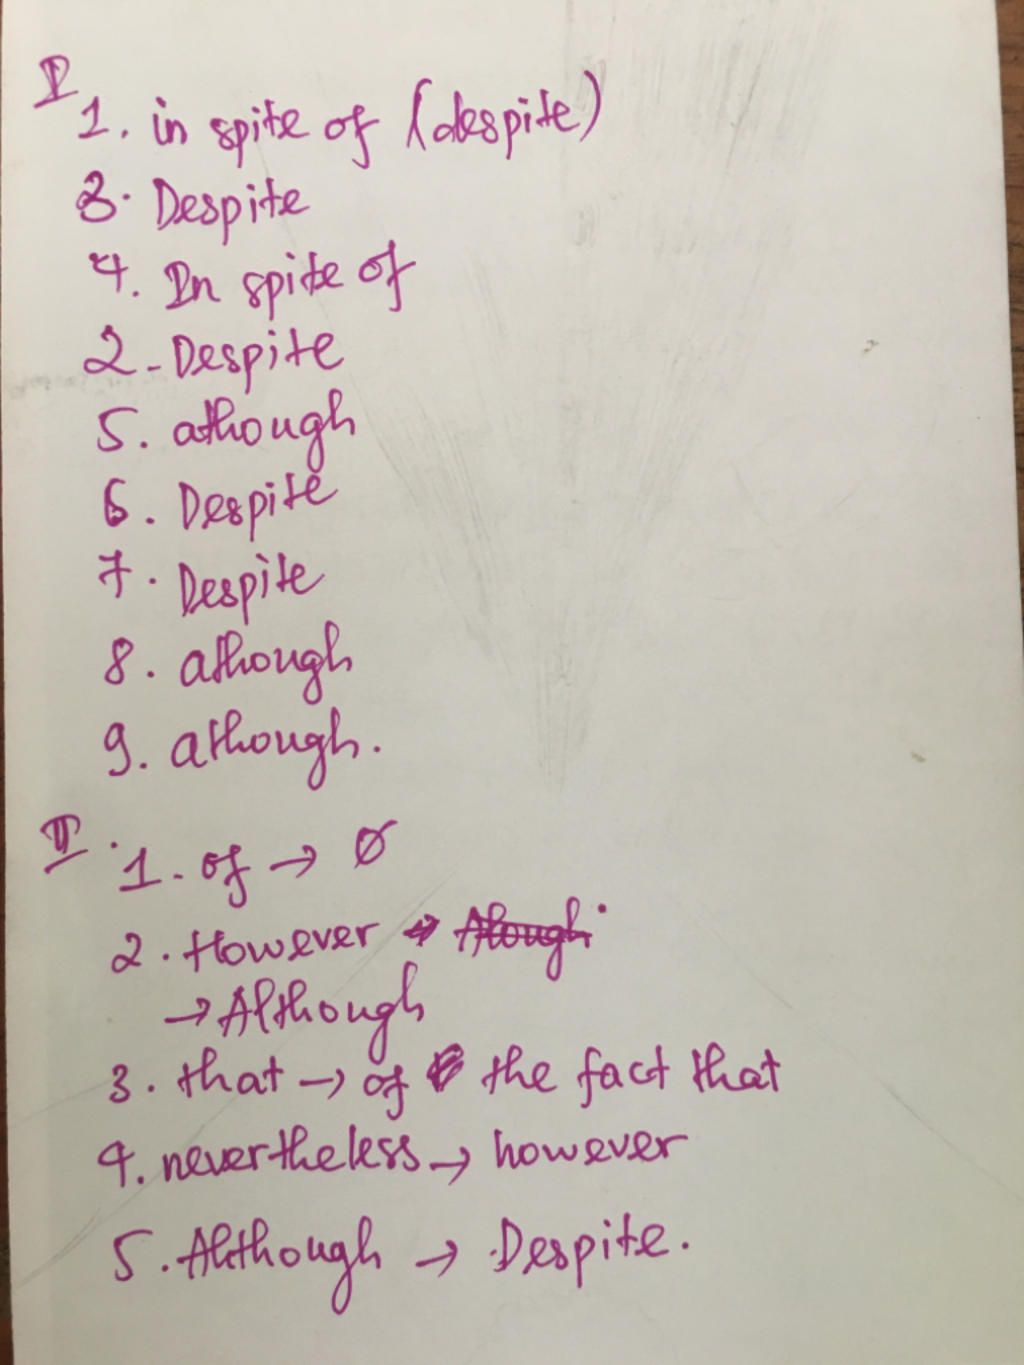 I
1. in spite of (despite)
3. Despite
4. In spite of
2 - Despite
5. athough
6. Despite
7. Despite
8. athough
9. athough.
II.
1. of → Ø
2. However → Alough
→ Although
3. that → of the fact that
4. nevertheless → however
5. Although → Despite.